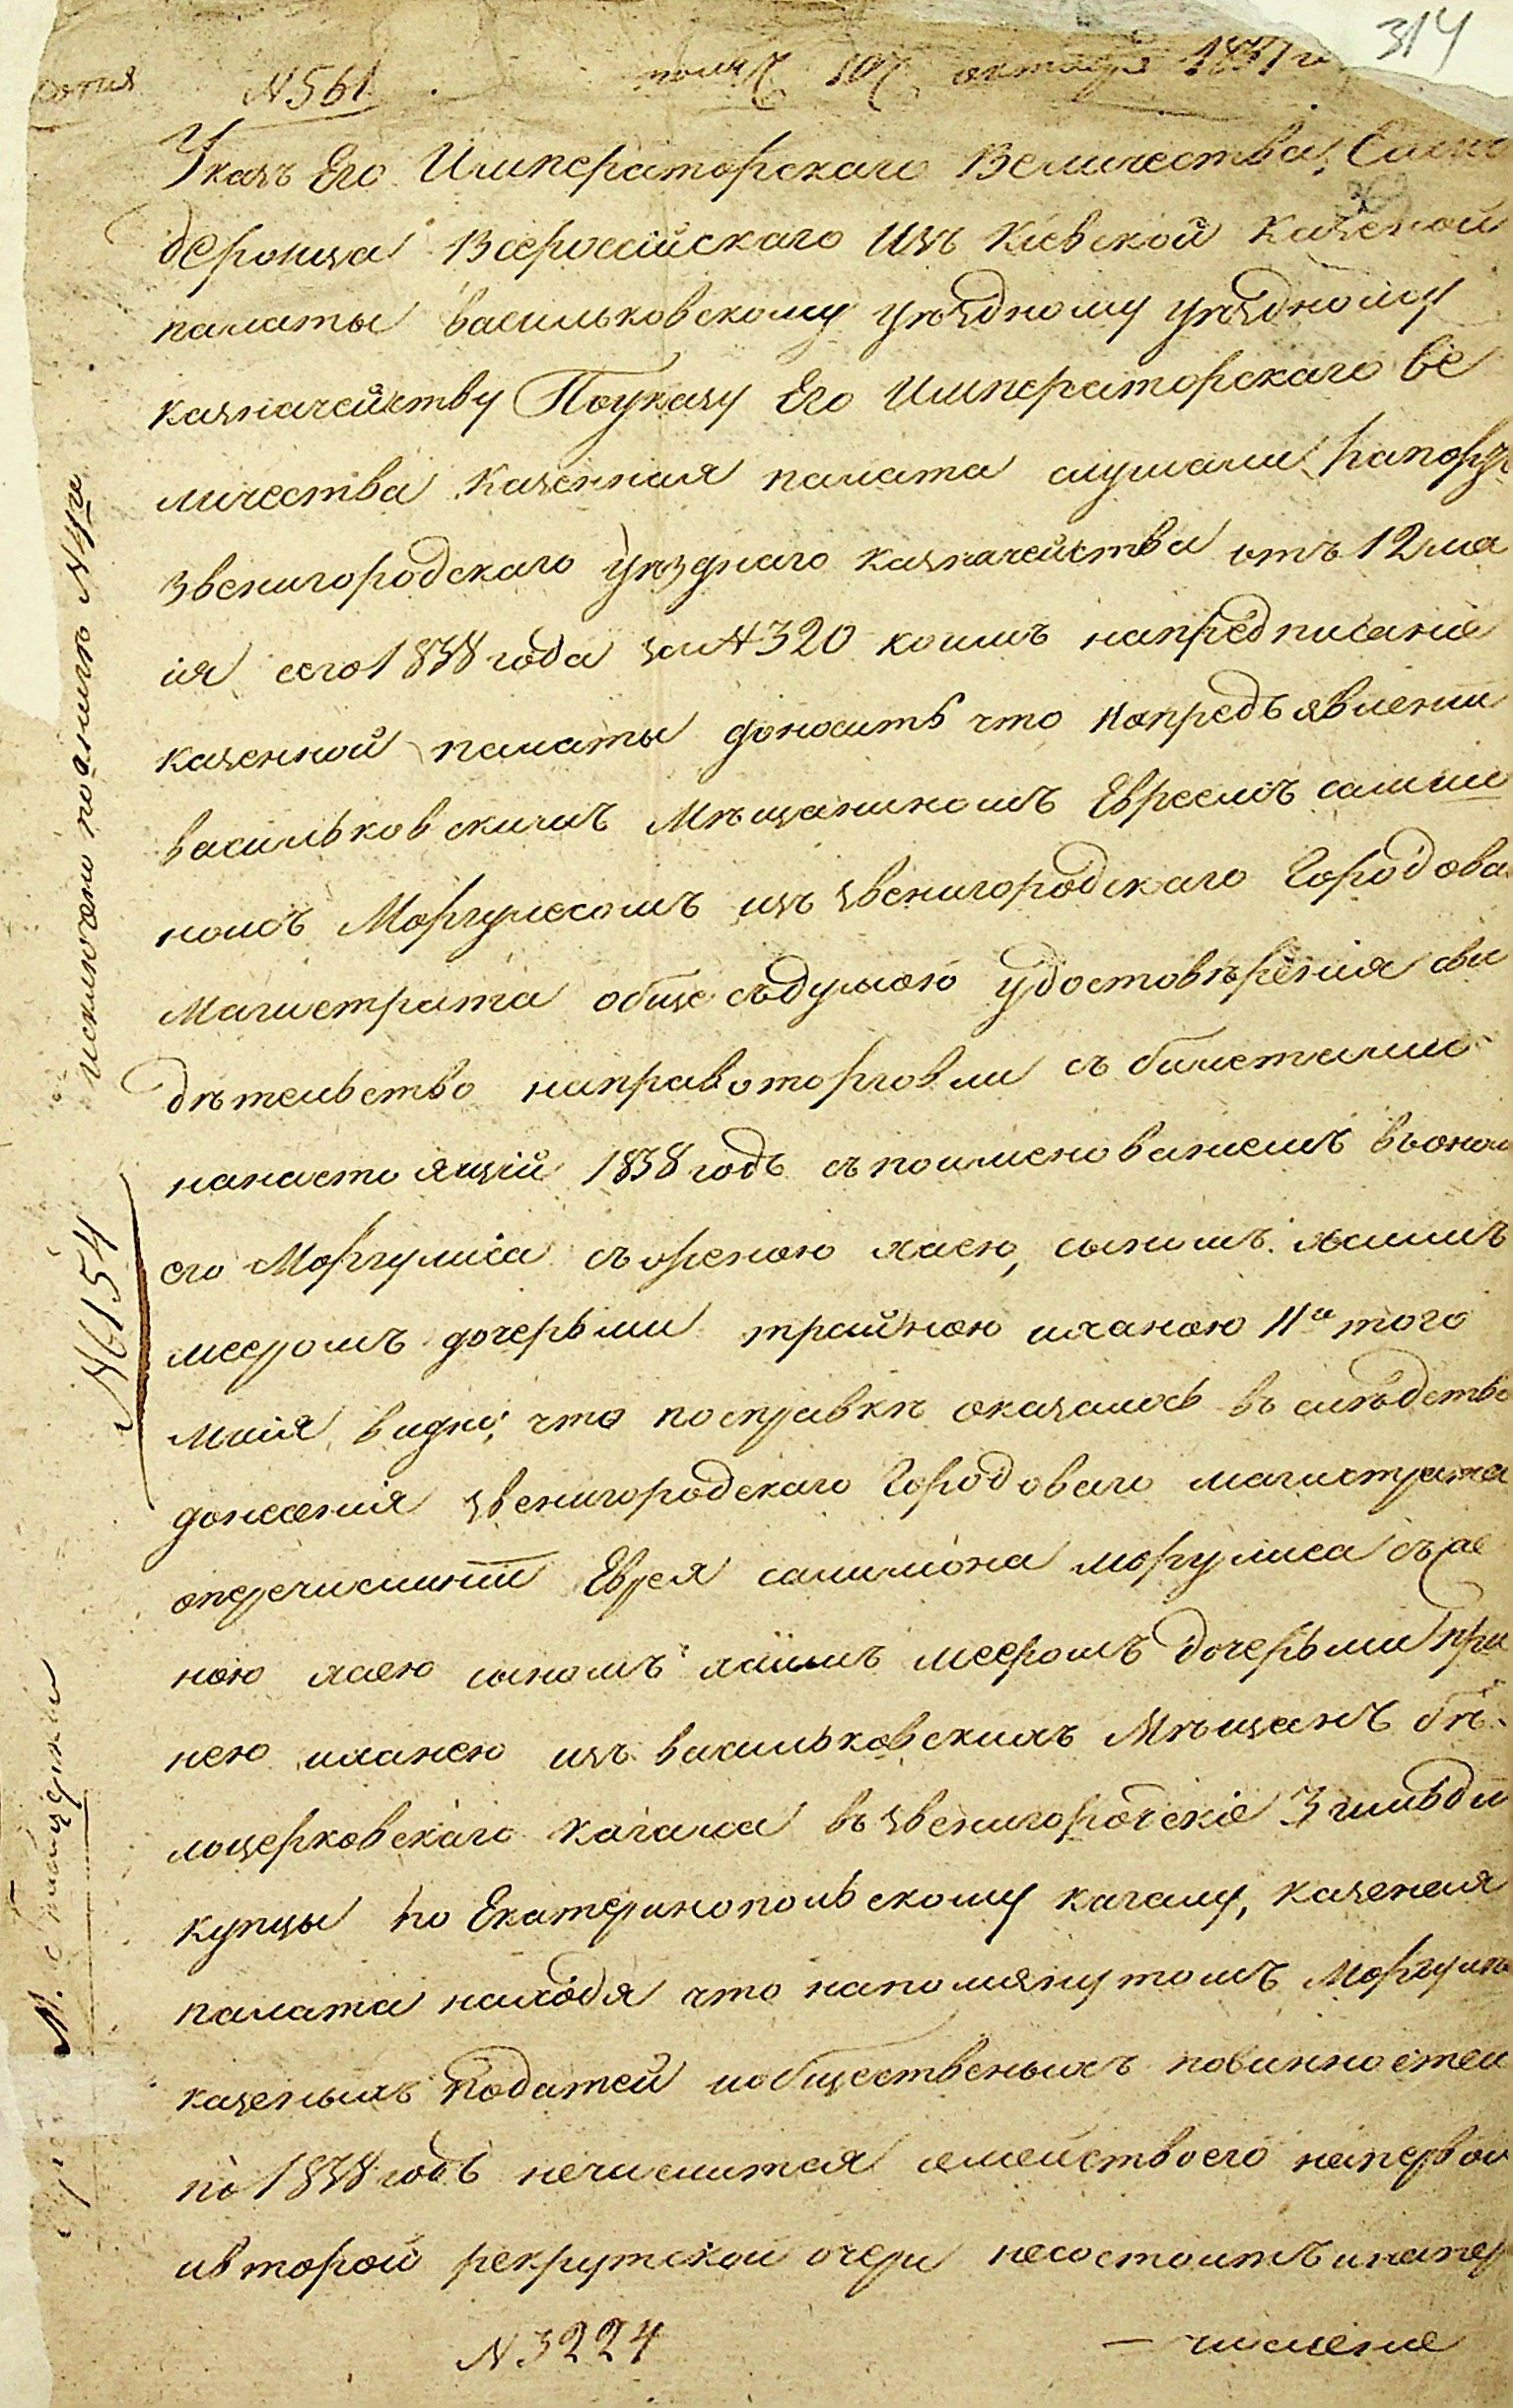 314
Копия N 561. полу: 10 октября 1837 го
Указъ Его Императорскаго Величества, Само
держца Всероссійскаго Изъ Кіевской казеной
палаты васильковскому уѣздному уѣздному
казначейству Поуказу Его Императорскаго Ве
личества Казенная палата слушали рапортъ
звенигородскаго уѣзднаго казначейства отъ 12 ма
ія сего 1838 года за N 320 коимъ напредписаніе
казенной палаты доноситъ что попредъявлении
васильковскимъ Мѣщаниномъ Евреемъ салимо
номъ Моргулесомъ изъ звенигородскаго Городова
Магистрата обще съдумою удостовѣренія сви
дѣтельство направоторговли съ билетами
нанастоящій 1838 годъ съпоименованіемъ въоном
его Моргулиса съженою хаею, сыномъ хаимъ
меером​ъ дочерьми трайною иханою 11го того
маія видно, что посправкѣ оказалось въ слѣдство
донесенія звенигородскаго Городоваго магистрата
оперечислинии Еврея салимона моргулиса съже
ною хаею сыномъ хаимъ мееромъ дочерьми тра
нею иханею изъ васильковскихъ Мѣщанъ бѣ
лоцерковскаго кагала въ звенигородскіе 3 гильди
купцы по Екатеринопольскому кагалу, казеная
палата находя что напомянутомъ Моргули
казеныхъ податей иобщественыхъ повинностей
по 1838 годъ нечислится семействоего наперво
ивторой рекрутской очери несостоитъ инапер
N 3224
— числение
исключено по книгѣ N 4го
N 6154